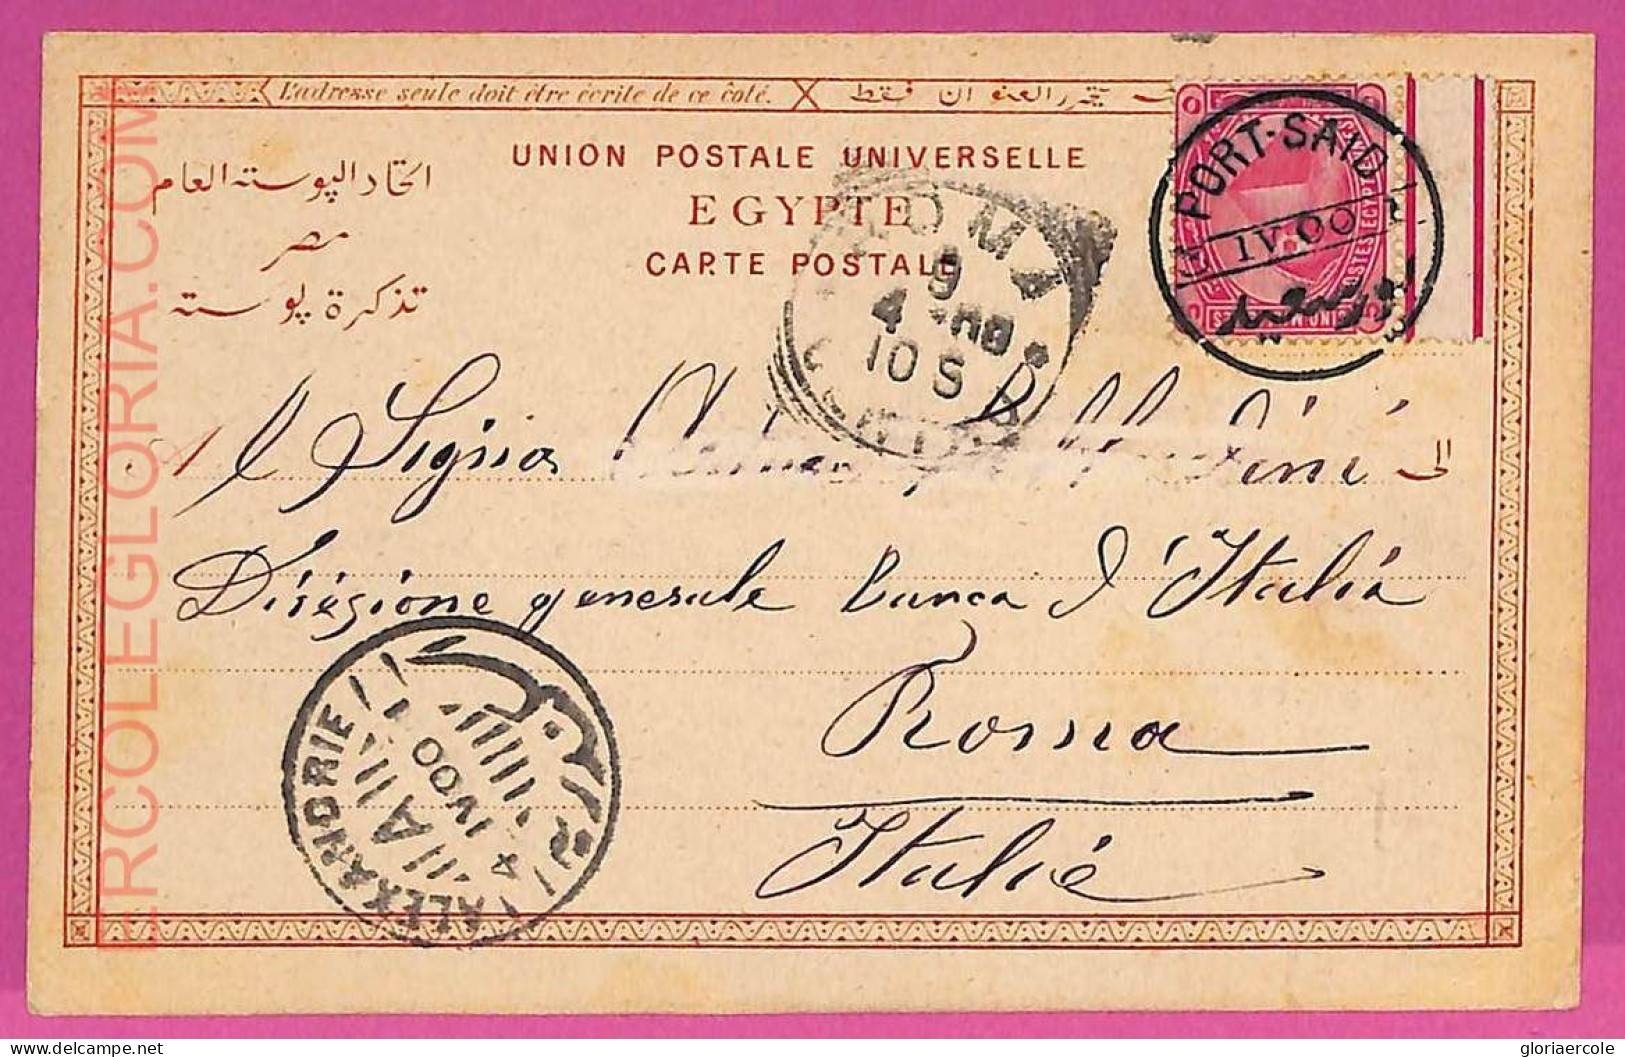 L'adresse seule doit être écrite de ce coté.
UNION POSTALE UNIVERSELLE
EGYPTE
CARTE POSTALE
اتحاد البوستة العام
مصر
تذكرة بوستة
PORT-SAID
IV.00
بورسعيد
ROMA
9
4
10 S
Al Signor
الى
Direzione generale Banca d'Italia
Roma
Italia
ALEXANDRIE
A
4 IV 00
ERCOLEGLORIA.COM
delcampe.net
gloriaercole